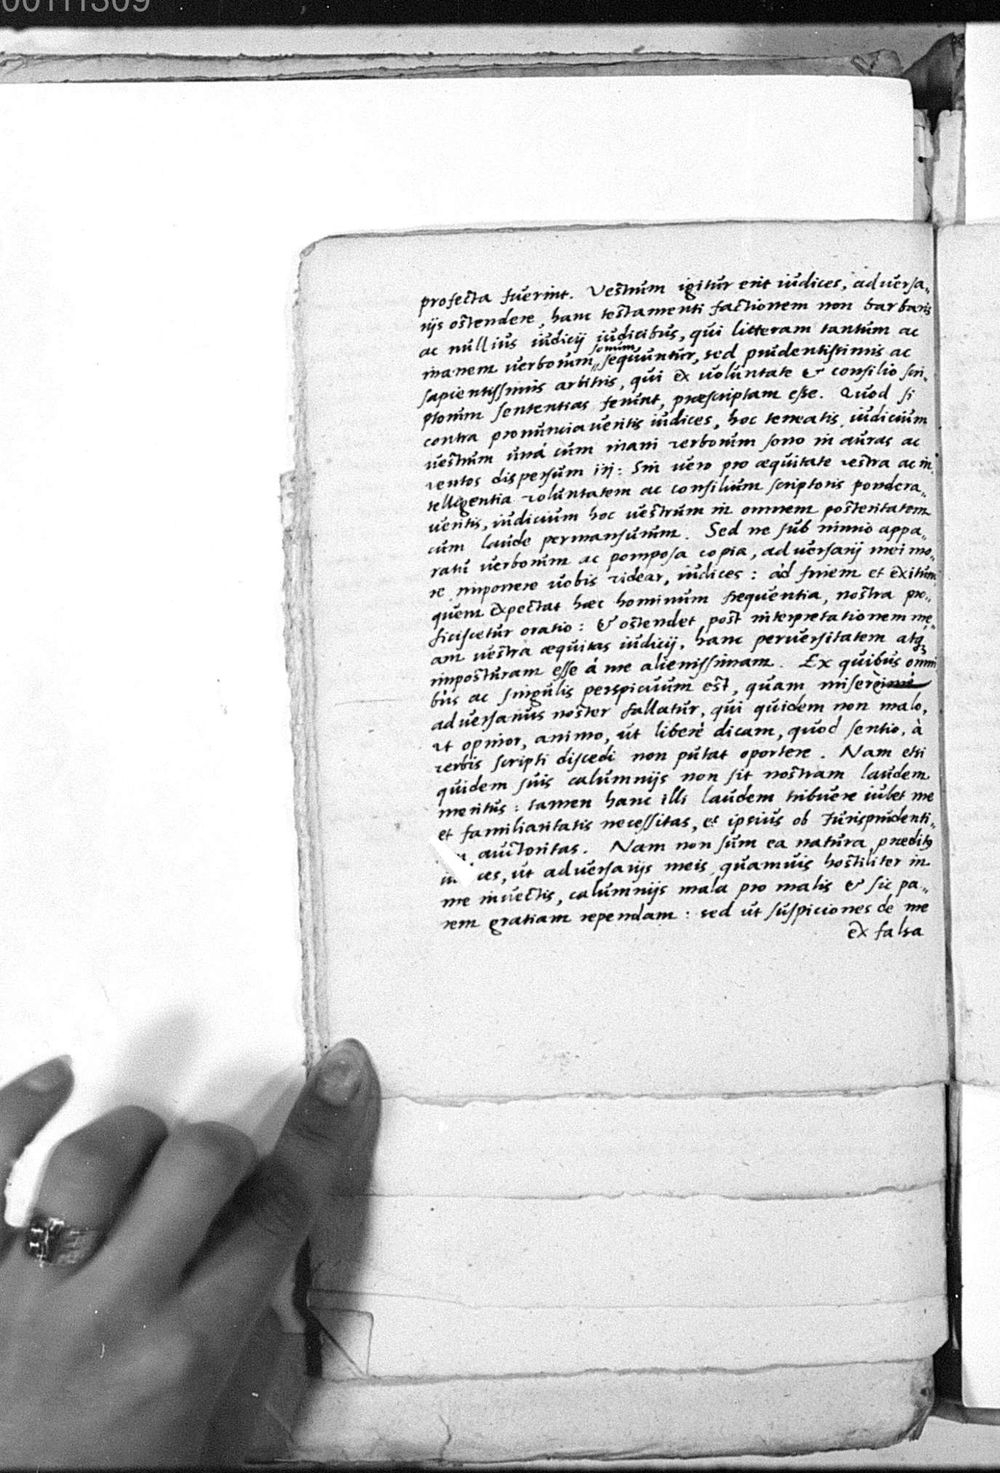 00111309
profecta fuerint. Vestrum igitur erit iudices, aduersa„
rijs ostendere, hanc testamenti factionem non barbaris
ac nullius iudicij iudicibus, qui litteram tantum ac
inanem verborum sonum sequuntur, sed prudentissimis ac
sapientissimis arbitris, qui ex voluntate & consilio scri„
ptorum sententias ferunt, præscriptam esse. Quod si
contra pronunciaueritis iudices, hoc teneatis, iudicium
vestrum unà cum inani verborum sono in auras ac
ventos dispersum iri: Sin vero pro æquitate vestra ac in„
telligentia voluntatem ac consilium scriptoris pondera„
ueritis, iudicium hoc vestrum in omnem posteritatem
cum laude permansurum. Sed ne sub nimio appa„
ratu verborum ac pomposa copia, aduersarij mei mo„
re imponere vobis videar, iudices: ad finem et exitum
quem expectat hæc hominum frequentia, nostra pro„
ficiscetur oratio: & ostendet, post interpretationem me„
am vestra æquitas iudicij, hanc peruersitatem atq;
imposturam esse à me alienissimam. Ex quibus omni
bus ac singulis perspicuum est, quam miserè
aduersarius noster fallatur, qui quidem non malo,
ut opinor, animo, ut liberè dicam, quod sentio, à
verbis scripti discedi non putat oportere. Nam etsi
quidem suis calumnijs non sit nostram laudem
meritus: tamen hanc illi laudem tribuere iubet me
et familiaritatis necessitas, et ipsius ob Jurisprudenti„
auctoritas. Nam non sum ea natura præditq
ces, ut aduersarijs meis quamuis hostiliter in
me inuectis, calumnijs mala pro malis & sic pa„
rem gratiam rependam: sed ut suspiciones de me
ex falsa